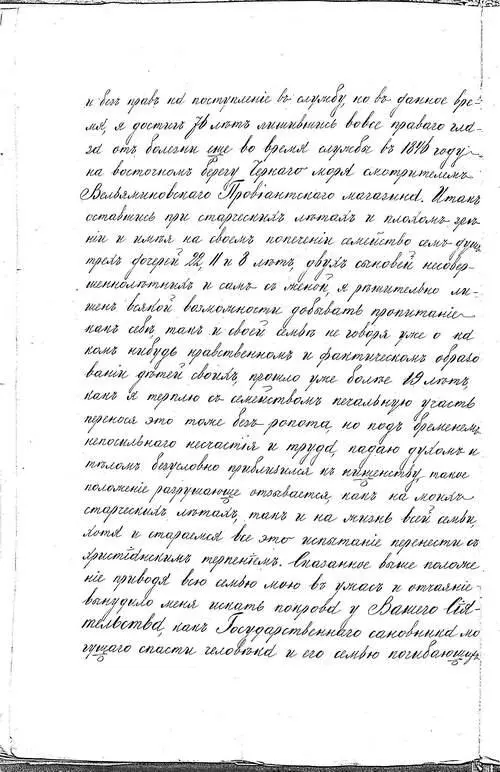 и безъ правъ на поступленіе въ службу, но въ данное вре-
мя, я достигъ 76 лѣтъ лишившись вовсе праваго гла-
за отъ болезни еще во время службы въ 1846 году
на восточномъ берегу Чернаго моря смотрителемъ
Вельяминовскаго Провіантскаго магазина. Итакъ
оставшись при старческихъ лѣтахъ и плохомъ зрѣ-
ніи и имѣя на своемъ попеченіи семейство семъ душъ
трехъ дочерей 22, 11 и 8 лѣтъ, двухъ сыновей несовер-
шеннолѣтнихъ и самъ съ женой, я рѣшительно ли-
шенъ всякой возможности добывать пропитаніе
какъ себѣ, такъ и своей семьѣ не говоря уже о ка
комъ нибудь нравственномъ и фактическомъ образо
ваніи дѣтей своихъ, прошло уже более 19 лѣтъ,
какъ я терплю съ семействомъ печальную участь
перенося это тоже безъ ропота, но подъ бременемъ
непосильнаго несчастія и труда, падаю духомъ и
тѣломъ безусловно приблизился къ нищенству, такое
положеніе разрушающе отзывается, какъ на моихъ
старческихъ лѣтахъ, такъ и на жизнь всей семьи,
хотя и стараемся все это испытаніе перенести съ
христіанскимъ терпеніемъ. Сказанное выше положе
ніе приводя всю семью мою въ ужасъ и отчаяніе
вынудило меня искать покрова у Вашего Сія-
тельства, какъ Государственнаго сановника мо
гущаго спасти человѣка и его семью погибающихъ